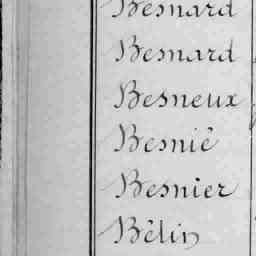 Besnard
Besnard
Besneux
Besnié
Besnier
Bêtin